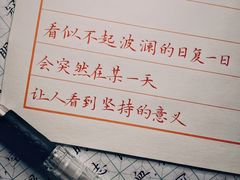 看似不起波澜的日复一日
会突然在某一天
让人看到坚持的意义